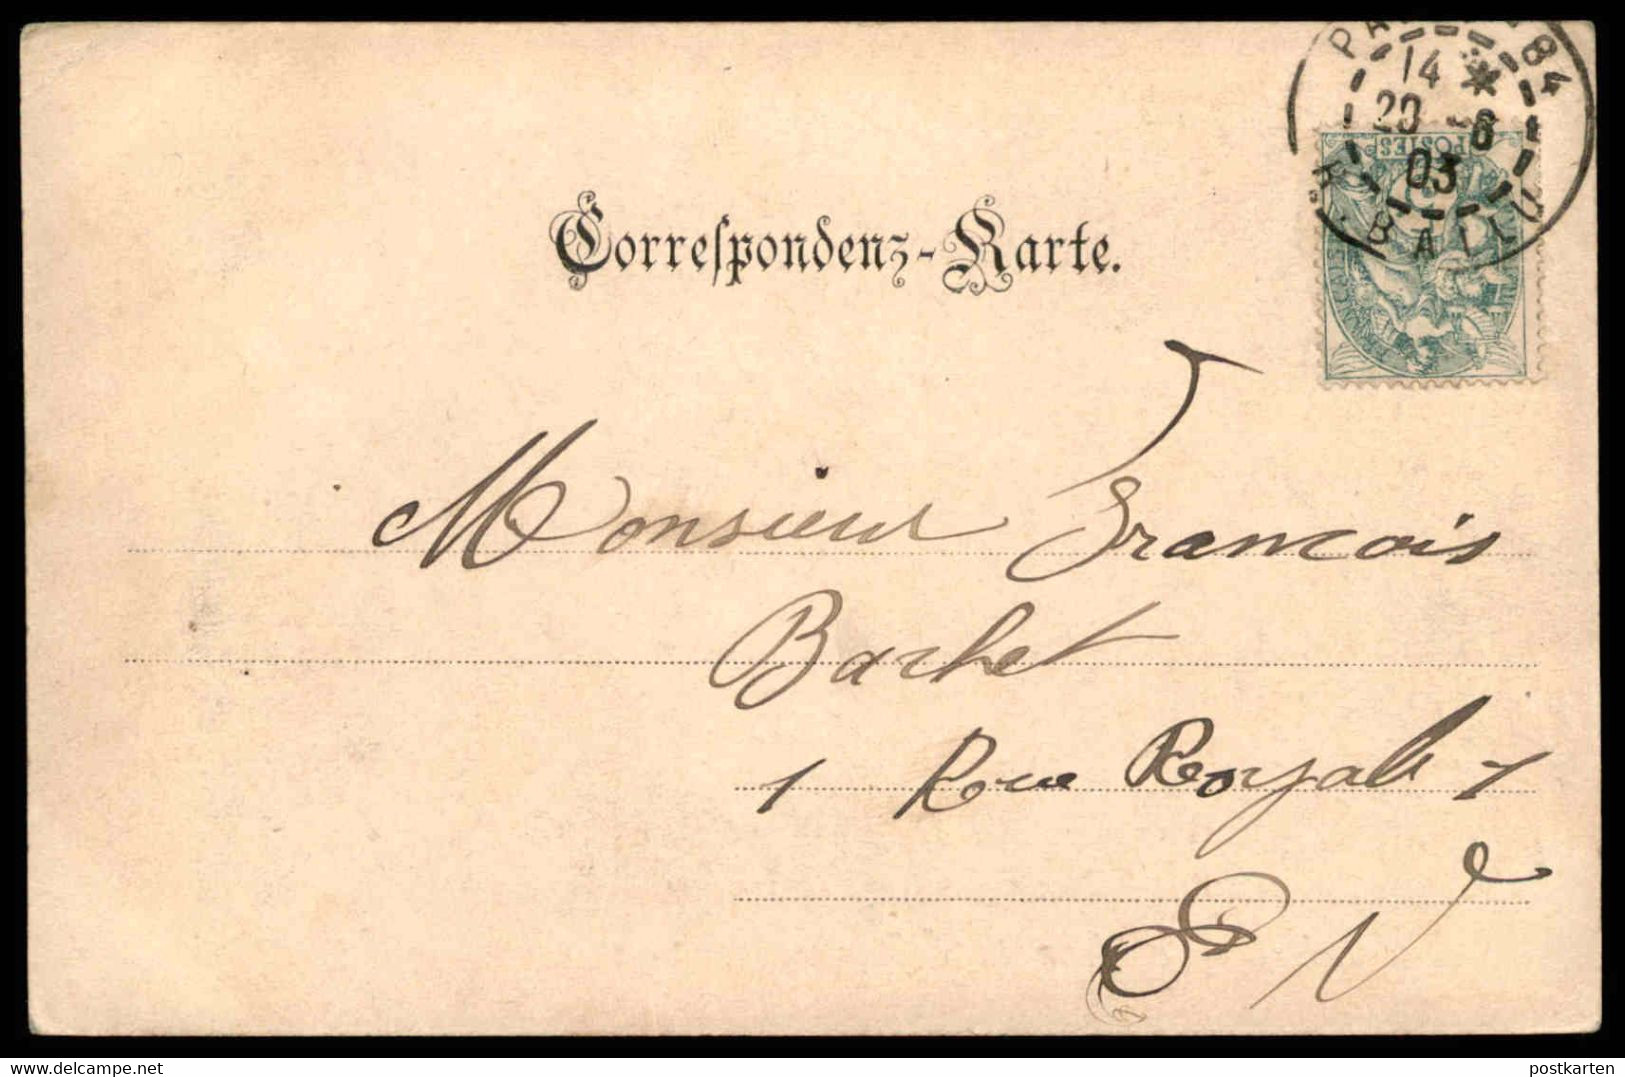 PA 84
14 *
20 -6
03
R. BALLU
POSTES
Correspondenz-Karte.
Monsieur Francois
Barbet
1 Rue Royale 1
E V
delcampe.net
postkarten